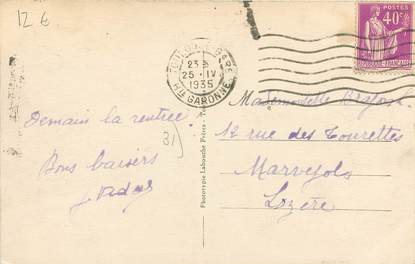 12 €
POSTES
40c
REPUBLIQUE FRANCAISE
GARE
23
25 - IV
1935
Hte GARONNE
Demain la rentrée
Bons baisers
31
Phototypie Labouche Frères
Mademoiselle
12 rue des Tourettes
Marvejols
Lozère